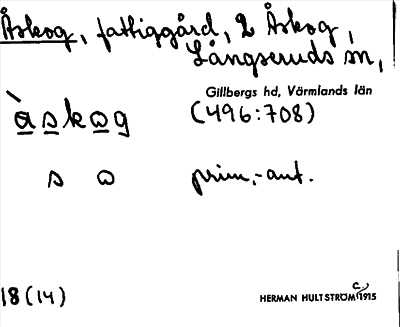 Åskog, fattiggård, 2 Åskog,
Långseruds sn,
Gillbergs hd, Värmlands län
àskog (496:708)
s ω prim.-ant.
18 (14)
HERMAN HULTSTRÖM c. 1915